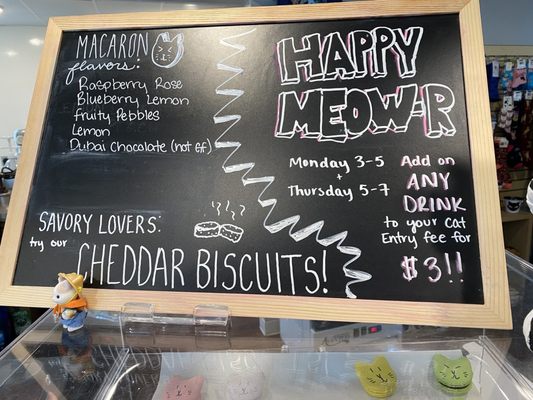 MACARON
flavors:
Raspberry Rose
Blueberry Lemon
Fruity Pebbles
Lemon
Dubai Chocolate (not G.F.)
SAVORY LOVERS:
try our
CHEDDAR BISCUITS!
HAPPY
MEOW-R
Monday 3-5
+
Thursday 5-7
Add on
ANY
DRINK
to your cat
Entry fee for
$3!!